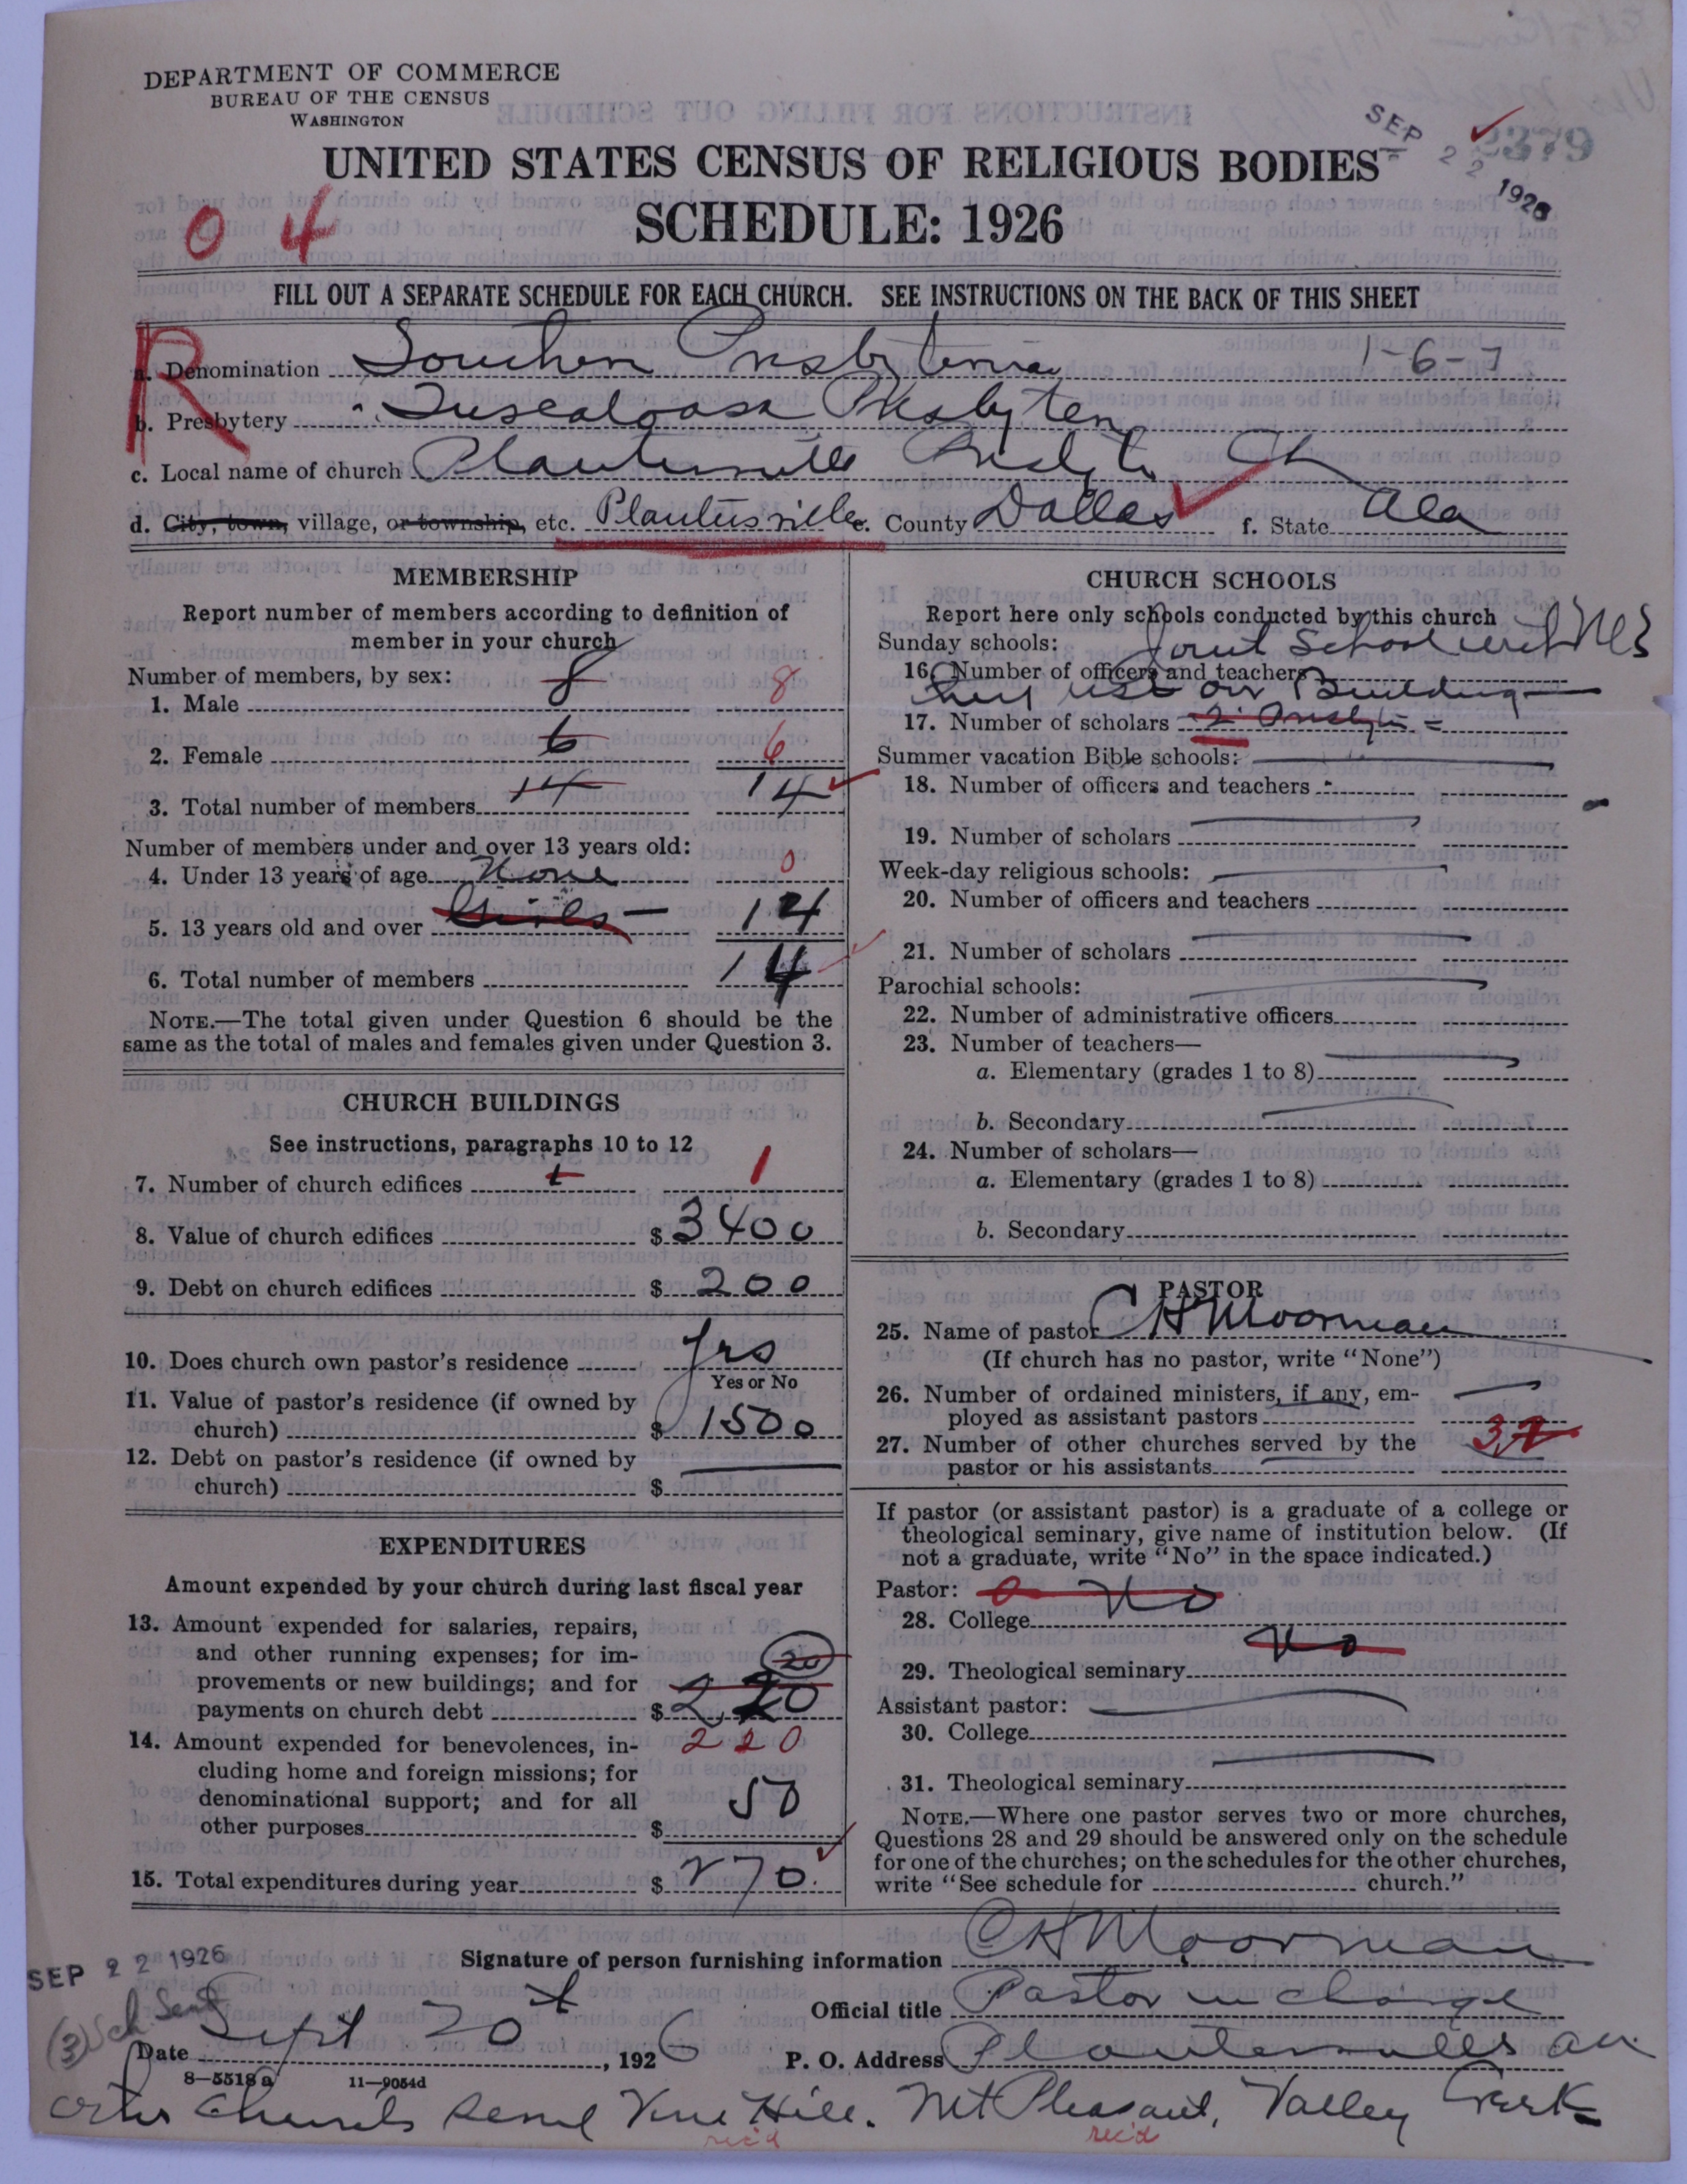 DEPARTMENT OF COMMERCE
BUREAU OF THE CENSUS
WASHINGTON
SEP 22 1926
2379
UNITED STATES CENSUS OF RELIGIOUS BODIES
SCHEDULE: 1926
0 4
FILL OUT A SEPARATE SCHEDULE FOR EACH CHURCH. SEE INSTRUCTIONS ON THE BACK OF THIS SHEET
R
a. Denomination Southern Presbyterian 1-6-7
b. Presbytery Tuscaloosa Presbytery
c. Local name of church Plantersville Presbyt. Ch
d. City, town, village, or township, etc. Plantersville e. County Dallas f. State Ala
MEMBERSHIP
Report number of members according to definition of
member in your church
Number of members, by sex:
1. Male 8 8
2. Female 6 6
3. Total number of members 14 14
Number of members under and over 13 years old:
4. Under 13 years of age None 0
5. 13 years old and over 14
6. Total number of members 14
NOTE.—The total given under Question 6 should be the
same as the total of males and females given under Question 3.
CHURCH BUILDINGS
See instructions, paragraphs 10 to 12
7. Number of church edifices 1 1
8. Value of church edifices $ 3400
9. Debt on church edifices $ 200
10. Does church own pastor's residence Yes
Yes or No
11. Value of pastor's residence (if owned by
church) $ 1500
12. Debt on pastor's residence (if owned by
church) $
EXPENDITURES
Amount expended by your church during last fiscal year
13. Amount expended for salaries, repairs,
and other running expenses; for im-
provements or new buildings; and for 20
payments on church debt $ 220
14. Amount expended for benevolences, in- 220
cluding home and foreign missions; for
denominational support; and for all 50
other purposes $
15. Total expenditures during year $ 270.
CHURCH SCHOOLS
Report here only schools conducted by this church
Sunday schools: Joint School with MES
16. Number of officers and teachers
they use our Building
17. Number of scholars 2 Presbyt =
Summer vacation Bible schools:
18. Number of officers and teachers
19. Number of scholars
Week-day religious schools:
20. Number of officers and teachers
21. Number of scholars
Parochial schools:
22. Number of administrative officers
23. Number of teachers—
a. Elementary (grades 1 to 8)
b. Secondary
24. Number of scholars—
a. Elementary (grades 1 to 8)
b. Secondary
PASTOR
25. Name of pastor C H Moorman
(If church has no pastor, write "None")
26. Number of ordained ministers, if any, em-
ployed as assistant pastors
27. Number of other churches served by the 3
pastor or his assistants
If pastor (or assistant pastor) is a graduate of a college or
theological seminary, give name of institution below. (If
not a graduate, write "No" in the space indicated.)
Pastor: No
28. College
29. Theological seminary No
Assistant pastor:
30. College
31. Theological seminary
NOTE.—Where one pastor serves two or more churches,
Questions 28 and 29 should be answered only on the schedule
for one of the churches; on the schedules for the other churches,
write "See schedule for church."
SEP 22 1926
Signature of person furnishing information C H Moorman
(3) Sch Sent
Official title Pastor in charge
Date Sept 20t, 1926
P. O. Address Plantersville Al
8-5518a 11-9054d
other Churches Serve Vine Hill. Mt Pleasant, Valley Creek
rec'd rec'd